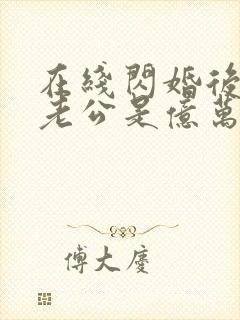 在綫閃婚後
老公是億萬
傅大慶